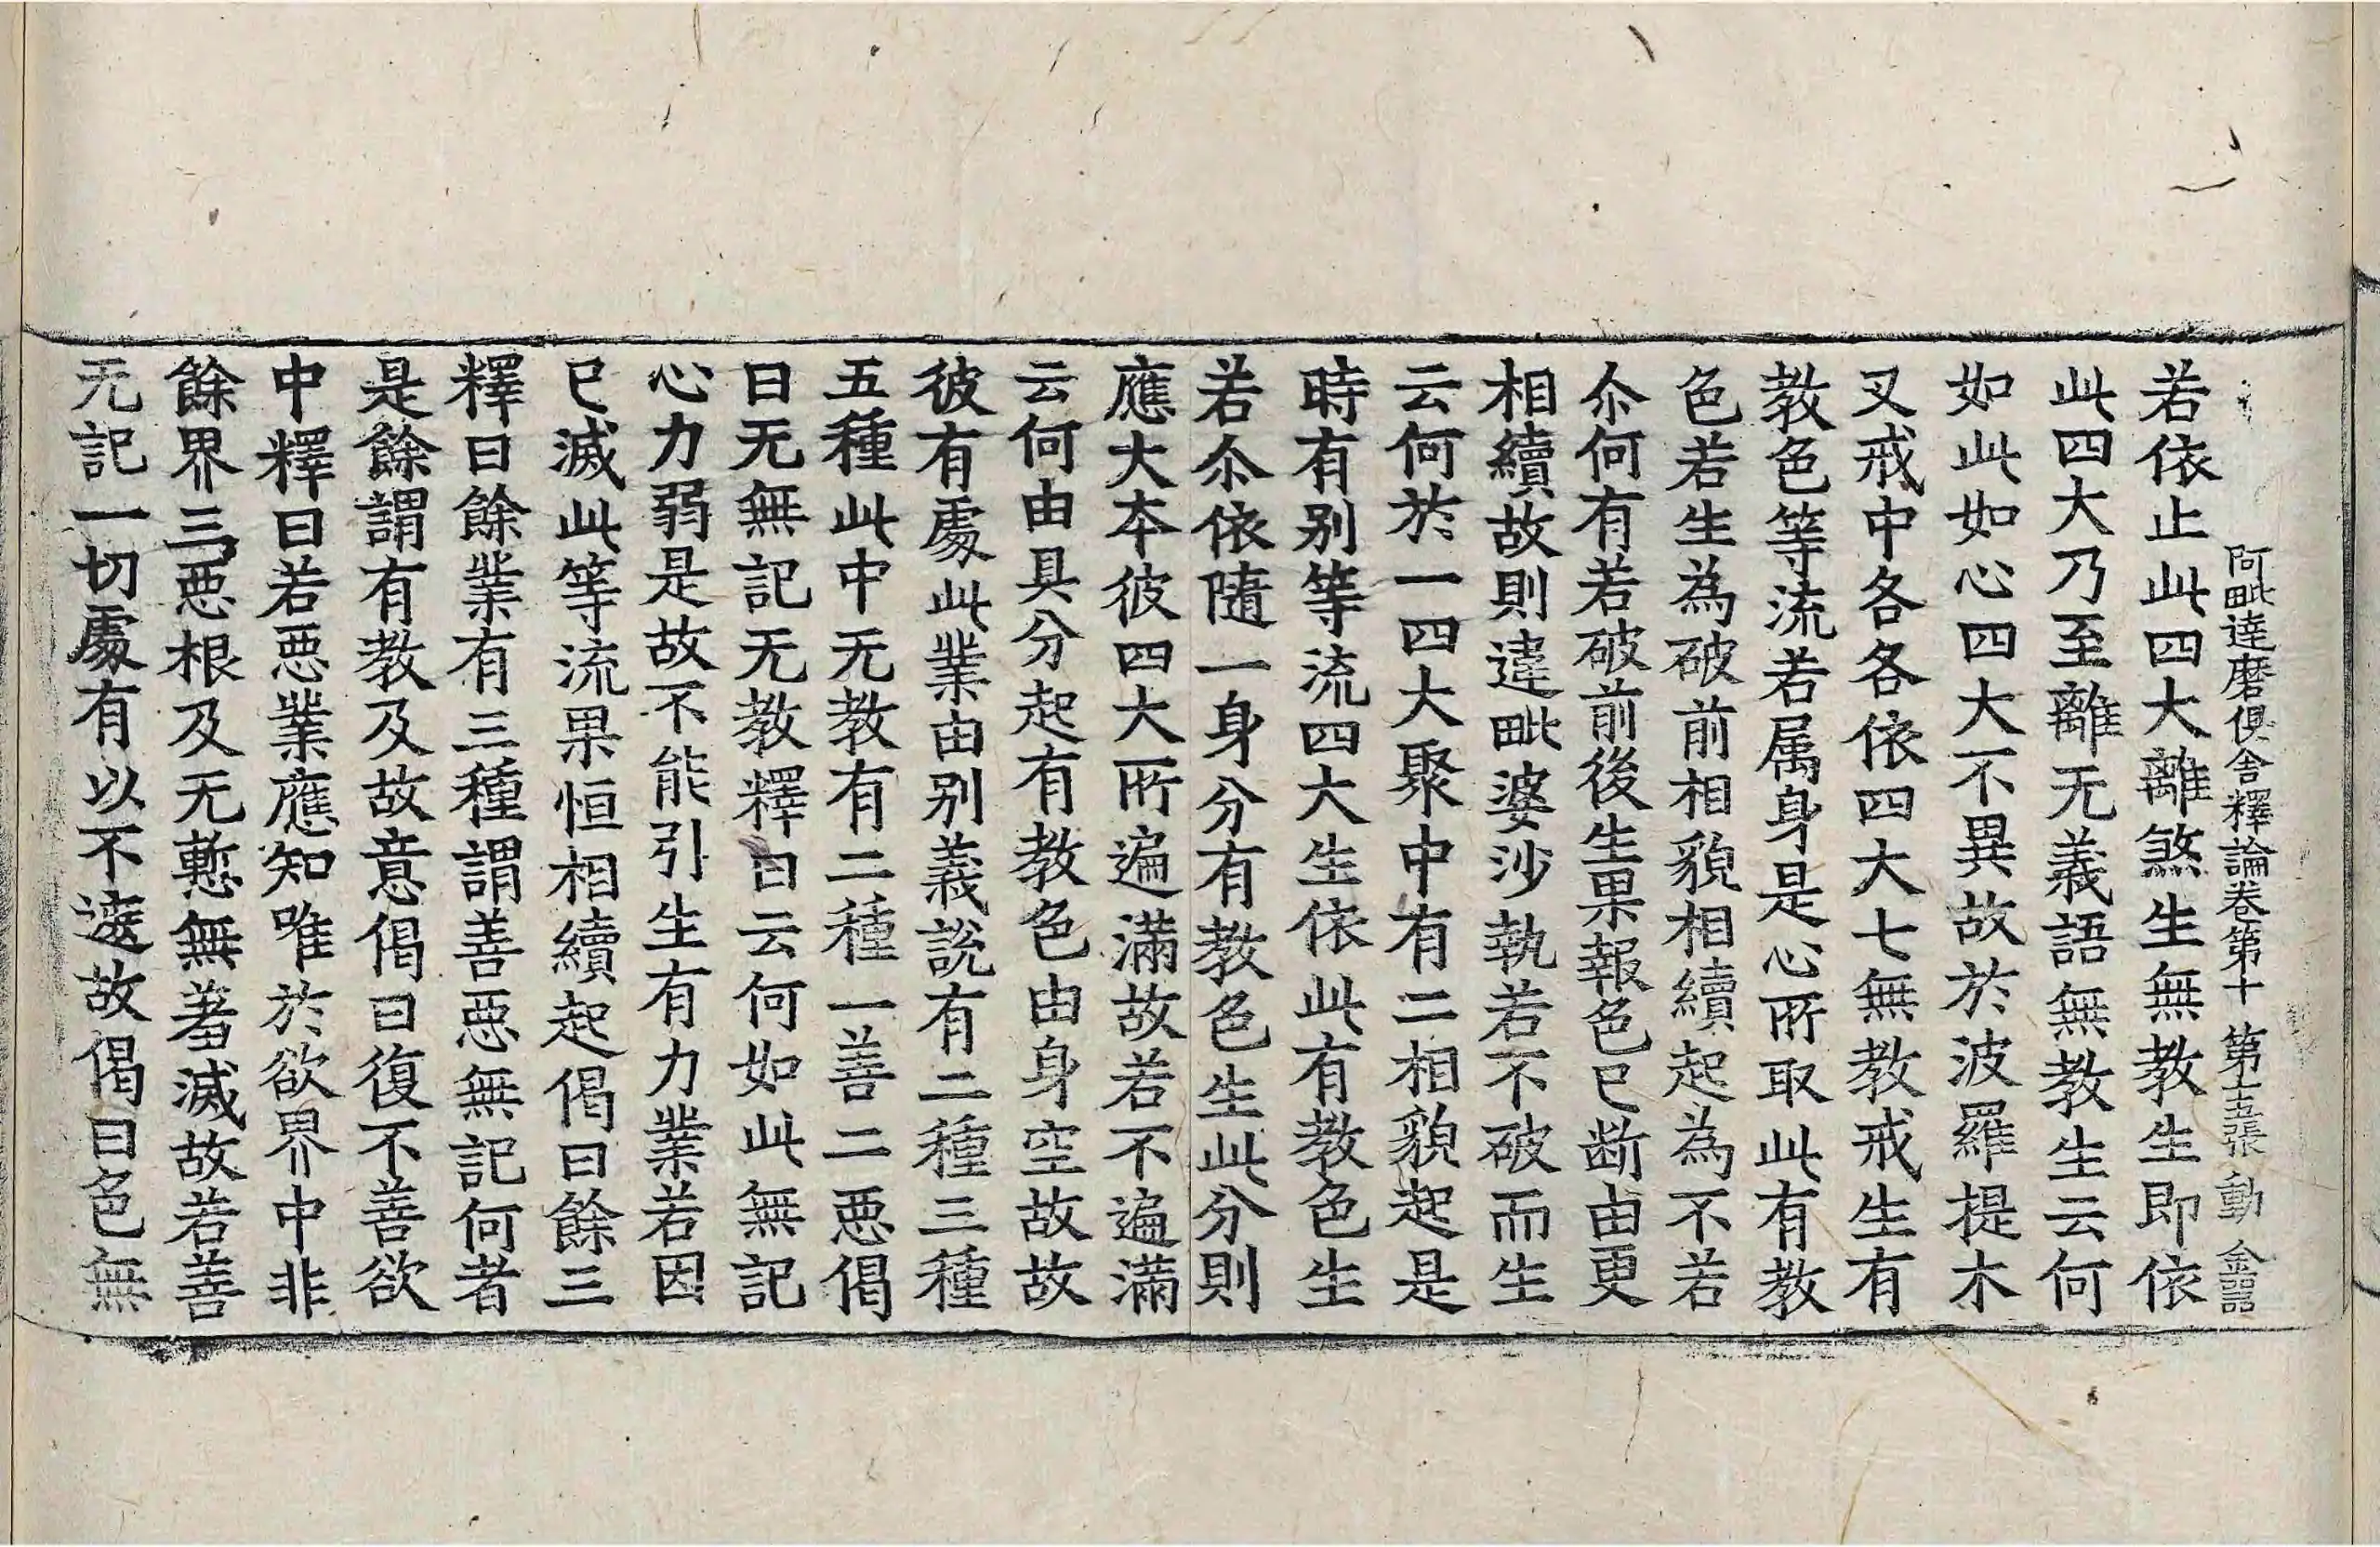 阿毗達磨俱舍釋論卷第十 第十五張 動 金
若依止此四大離煞生無教生即依
此四大乃至離无義語無教生云何
如此如心四大不異故於波羅提木
叉戒中各各依四大七無教戒生有
教色等流若属身是心所取此有教
色若生為破前相貌相續起為不若
尒何有若破前後生果報色已断由更
相續故則違毗婆沙執若不破而生
云何於一四大聚中有二相貌起是
時有别等流四大生依此有教色生
若尒依隨一身分有教色生此分則
應大本彼四大所遍滿故若不遍滿
云何由具分起有教色由身空故故
彼有處此業由别義說有二種三種
五種此中无教有二種一善二惡偈
曰无無記无教釋曰云何如此無記
心力弱是故不能引生有力業若因
已滅此等流果恒相續起偈曰餘三
釋曰餘業有三種謂善惡無記何者
是餘謂有教及故意偈曰復不善欲
中釋曰若惡業應知唯於欲界中非
餘界三惡根及无慙無羞滅故若善
无記一切處有以不遮故偈曰色無